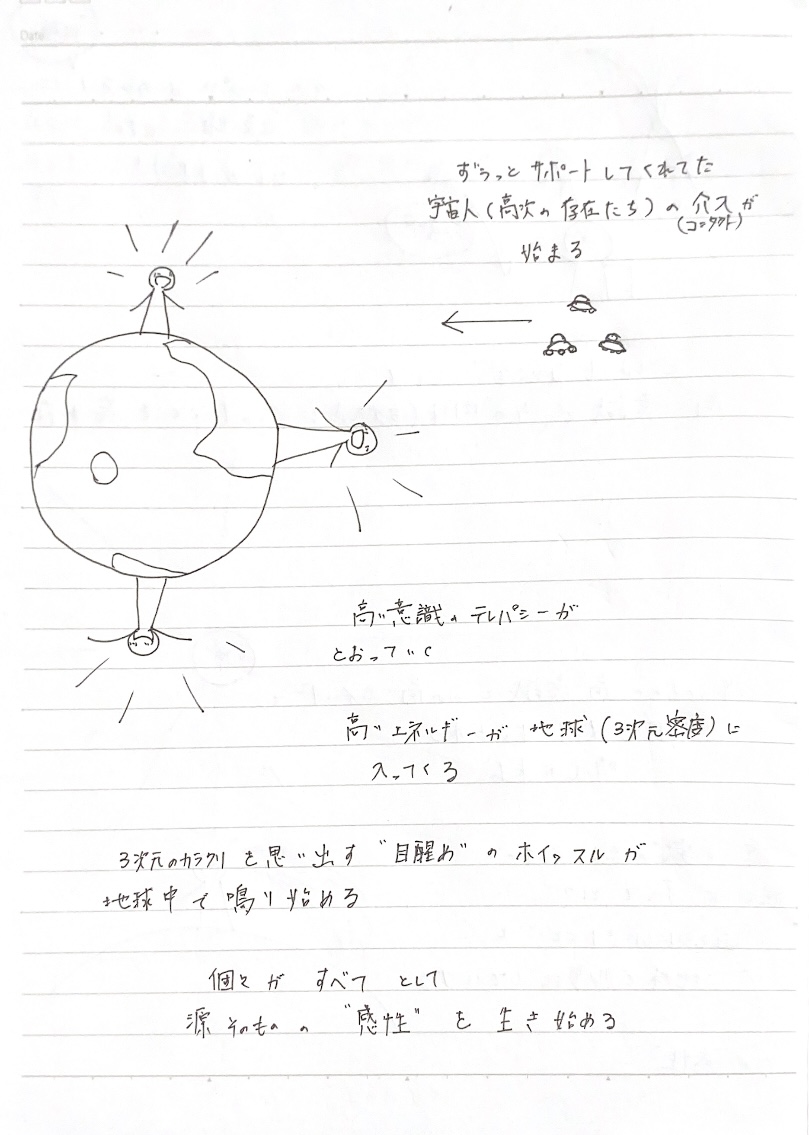 Date
ずうっとサポートしてくれてた
宇宙人(高次の存在たち)の介入が
(コンタクト)
始まる
高い意識のテレパシーが
とおっていく
高いエネルギーが地球(3次元密度)に
入ってくる
3次元のカラクリを思い出す"目醒め"のホイッスルが
地球中で鳴り始める
個々がすべてとして
源そのものの"感性"を生き始める